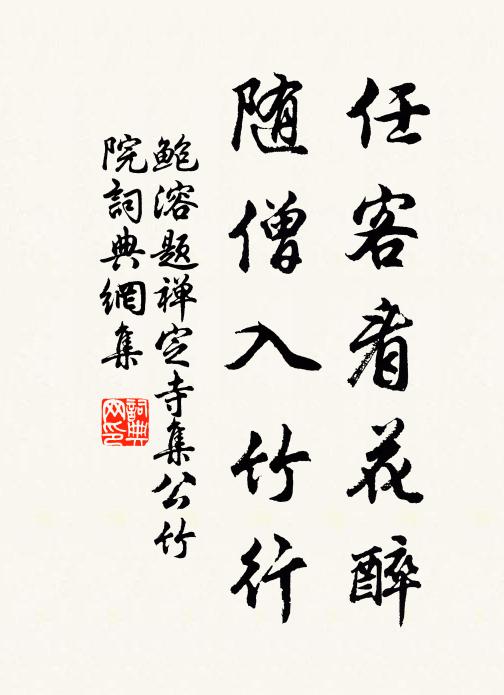 任客看花醉
随僧入竹行
鲍溶题禅定寺集公竹
院詞典網集
詞典网印